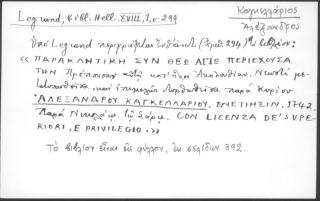 Legrand, Bibl. Hell. XVIII, 1, σ. 299
Καγκελλάριος
Ἀλέξανδρος
Ὑπὸ Legrand περιγράφεται (ἀριθ. 294) τὸ βιβλίον:
« ΠΑΡΑΚΛΗΤΙΚΗ ΣΥΝ ΘΕΩ ΑΓΙΩ ΠΕΡΙΕΧΟΥΣΑ
ΤΗΝ Πρέπουσαν αὐτῇ Ἀκολουθίαν. Νεωστὶ με-
τατυπωθεῖσα, καὶ ἐπιμελῶς διορθωθεῖσα παρὰ Κυρίου
ΑΛΕΞΑΝΔΡΟΥ ΚΑΓΚΕΛΛΑΡΙΟΥ, ΕΝΕΤΙΗΣΙΝ, 1742.
Παρὰ Νικολάῳ τῷ Σάρῳ. CON LICENZA DE' SUPE-
RIORI, E PRIVILEGIO.»
Τὸ βιβλίον εἶναι εἰς φύλλον, ἐκ σελίδων 392.